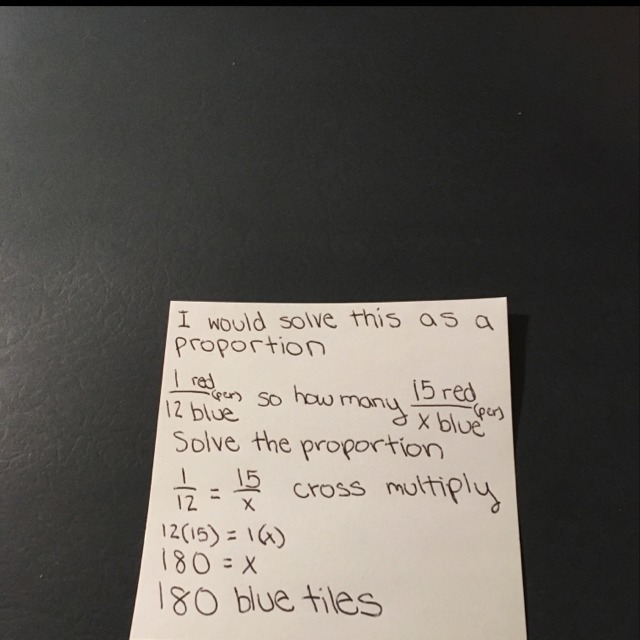 I would solve this as a
proportion
1 red (per) / 12 blue so how many 15 red (per) / x blue
Solve the proportion
1/12 = 15/x cross multiply
12(15) = 1(x)
180 = x
180 blue tiles